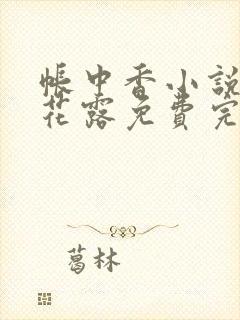 帳中香小說
花露免費完
葛林